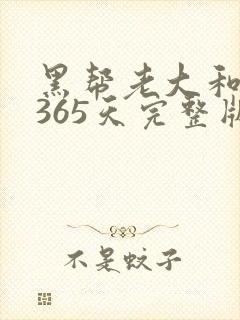 黑帮老大和
365天完整版
不是蚊子